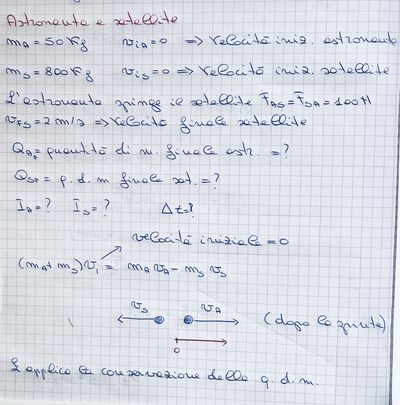 Astronauta e satellite
m_A = 50 Kg v_iA = 0 => velocità iniz. astronauta
m_S = 800 Kg v_iS = 0 => velocità iniz. satellite
L'astronauta spinge il satellite F_AS = F_SA = 100 N
v_FS = 2 m/s => velocità finale satellite
Q_AF = quantità di m. finale astr. = ?
Q_SF = q. d. m finale sat. = ?
I_A = ? I_S = ? Δt = ?
velocità iniziale = 0
(m_A + m_S) v_i = m_A v_A - m_S v_S
v_S v_A (dopo la spinta)
0
Si applica la conservazione della q. d. m.